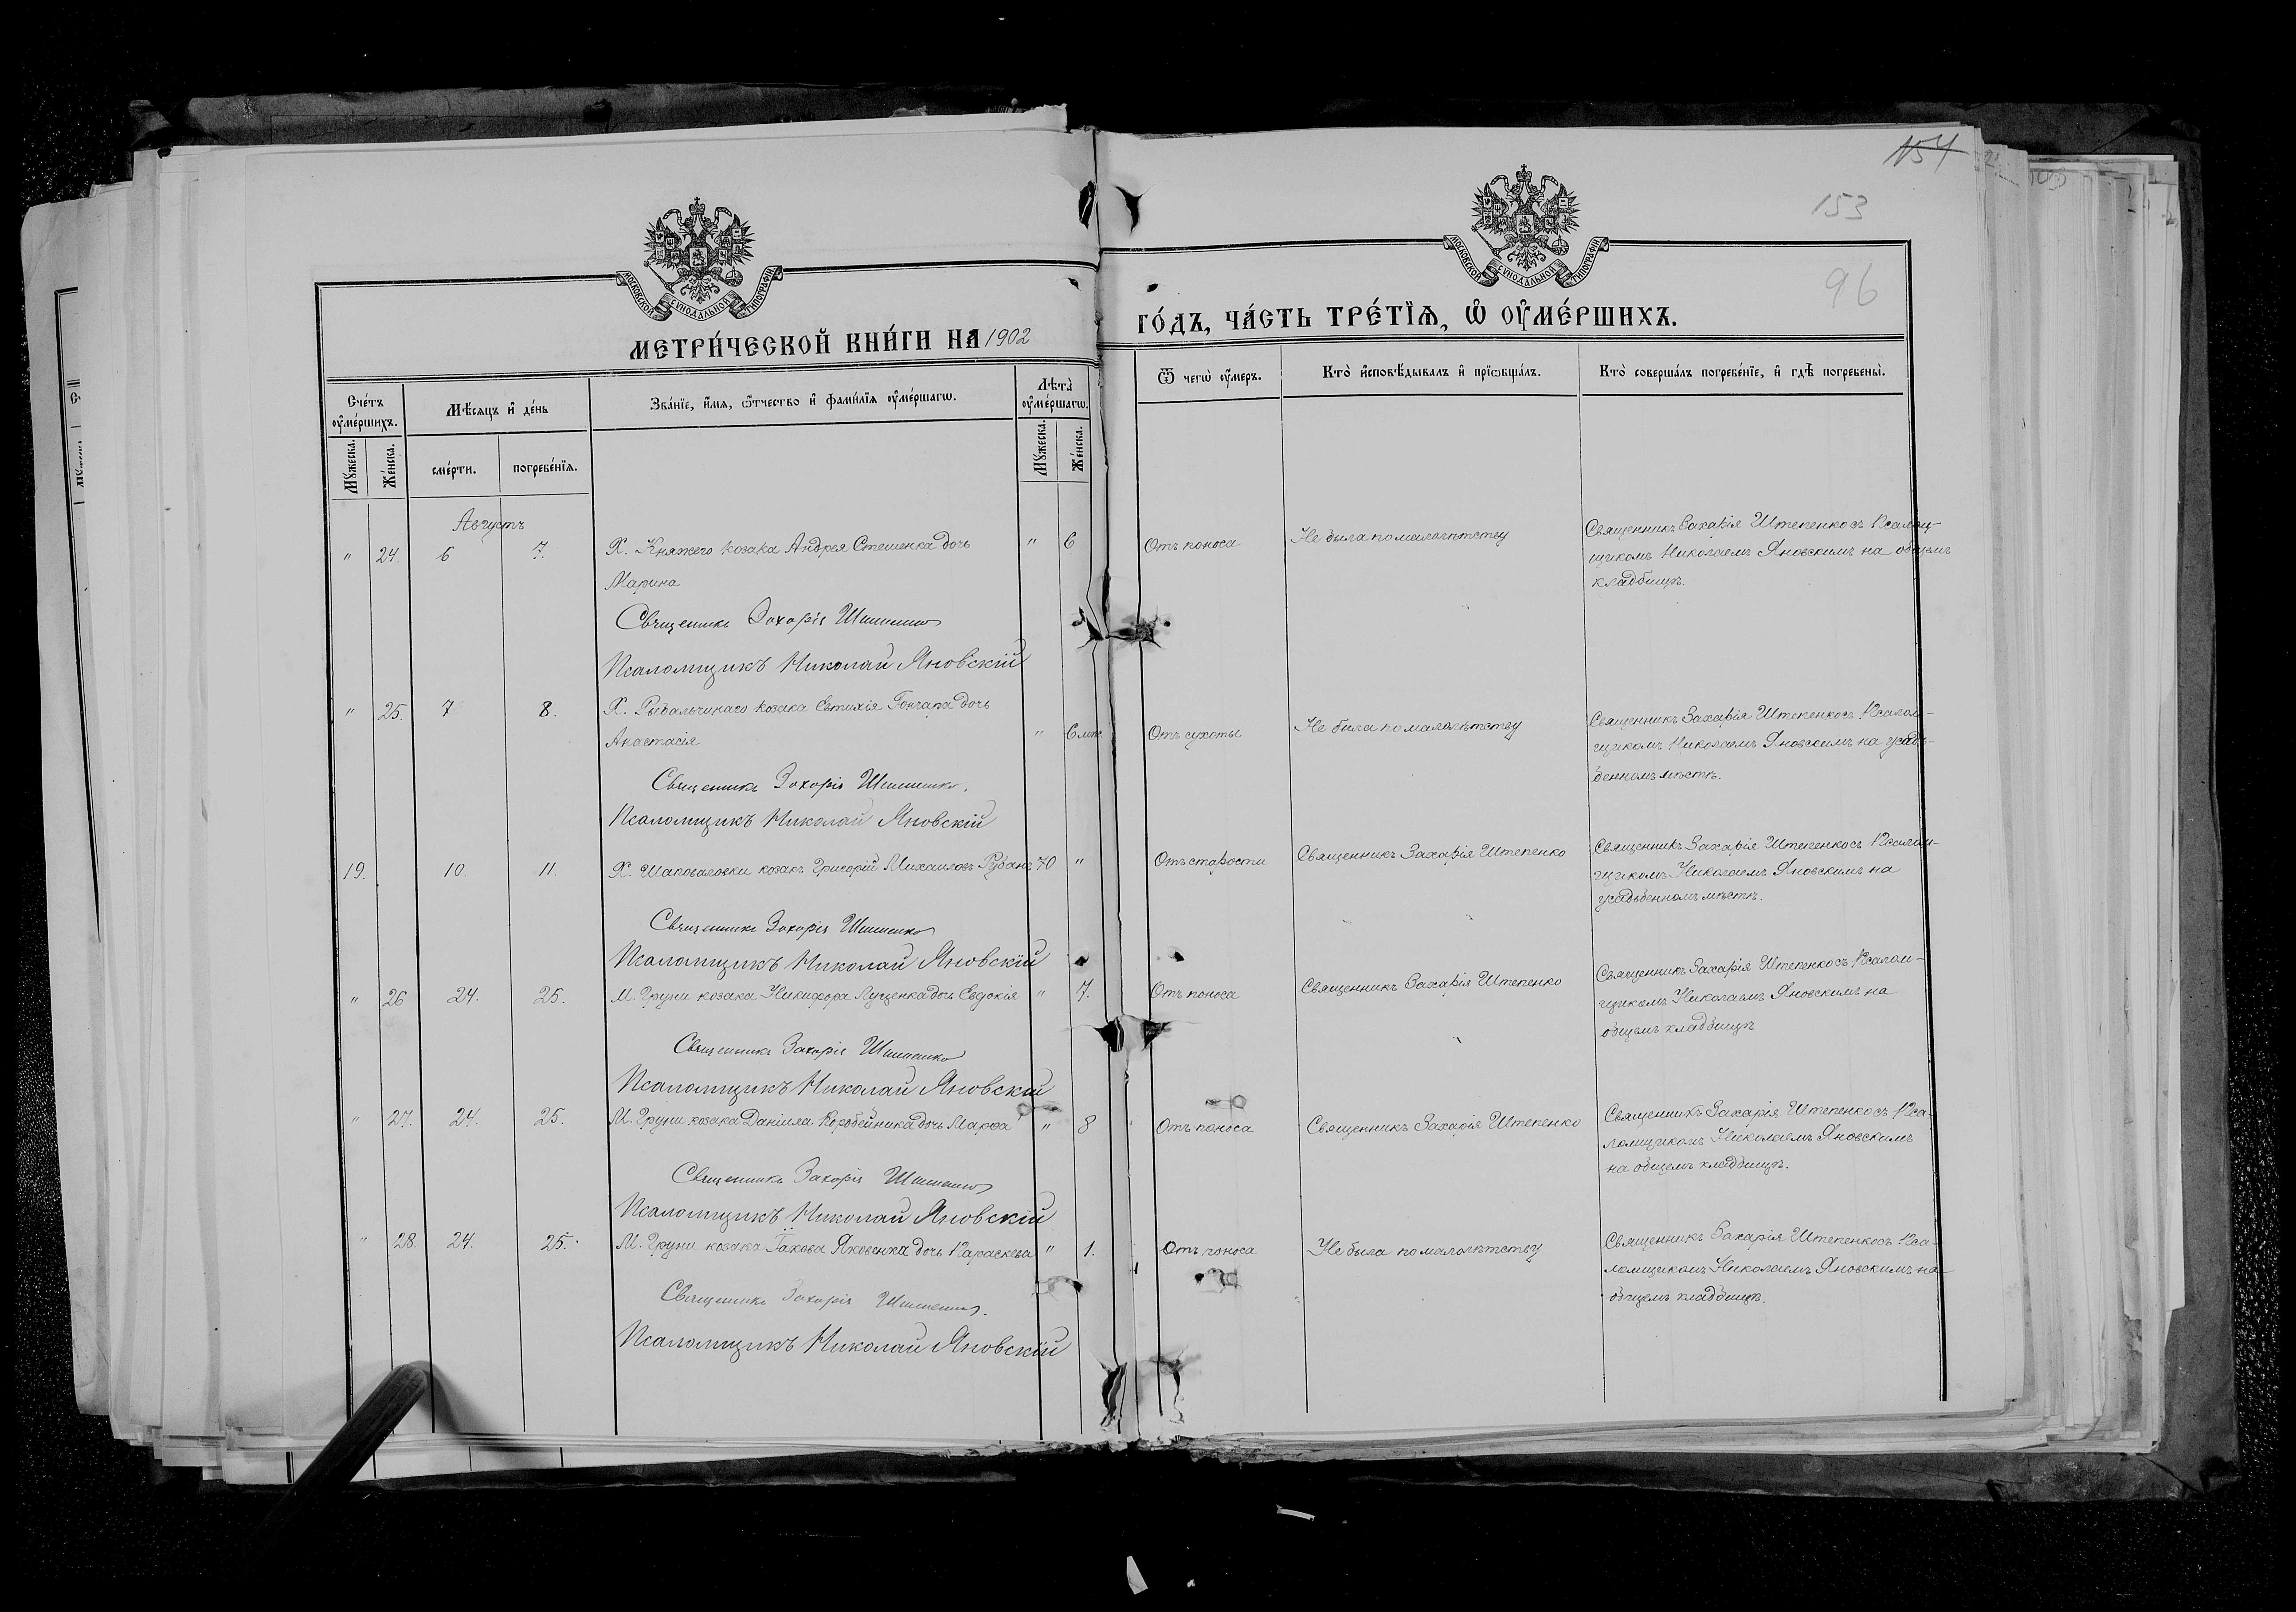 154
153
96
МОСКОВСКОЙ СѴНОДАЛЬНОЙ ТИПОГРАФІИ
МОСКОВСКОЙ СѴНОДАЛЬНОЙ ТИПОГРАФІИ
МЕТРИ́ЧЕСКОЙ КНИ́ГИ НА 1902
ГО́ДЪ, ЧА́СТЬ ТРЕ́ТЇѦ, Ѡ҆ ОУ҆МЕ́РШИХЪ.
Сче́тъ оу҆ме́ршихъ.
Мꙋ́жеска.
Же́нска.
Мѣ́сяцъ и҆ де́нь
сме́рти.
погребе́нїѧ.
Зва́нїе, и҆́мѧ, ѻ҆́тчество и҆ фамилїѧ оу҆ме́ршагѡ.
Лѣта̀ оу҆ме́ршагѡ.
Мꙋ́жеска.
Же́нска.
Ѿ чегѡ̀ оу҆́меръ.
Кто̀ и҆сповѣ́дывалъ и҆ прїѡбща́лъ.
Кто̀ соверша́лъ погребе́нїе, и҆ гдѣ̀ погребены̀.
Августъ
" 24. 6 7. Х. Княжего козака Андрея Стешенка дочь " 6 Отъ поноса Не была по малолѣтству Священникъ Захарія Штепенко съ Псалом-
Марина щикомъ Николаемъ Яновскимъ на общемъ
кладбищѣ.
Священникъ Захарія Штепенко
Псаломщикъ Николай Яновскій
" 25. 7 8. Х. Рыбальчинаго козака Евтихія Гончара дочь Священникъ Захарія Штепенко съ Псалом-
Анастасія " 6 мѣс. Отъ сухоты Не была по малолѣтству щикомъ Николаемъ Яновскимъ на усадь-
бенномъ мѣстѣ.
Священникъ Захарія Штепенко.
Псаломщикъ Николай Яновскій
19. 10. 11. Х. Шаповаловки козакъ Григорій Михаиловъ Рубанъ 70 " Отъ старости Священникъ Захарія Штепенко Священникъ Захарія Штепенко съ Псалом-
щикомъ Николаемъ Яновскимъ на
усадьбенномъ мѣстѣ.
Священникъ Захарія Штепенко
Псаломщикъ Николай Яновскій
" 26 24. 25. М. Груни козака Никифора Луценка дочь Евдокія " 7. Отъ поноса Священникъ Захарія Штепенко Священникъ Захарія Штепенко съ Псалом-
щикомъ Николаемъ Яновскимъ на
общемъ кладбищѣ
Священникъ Захарія Штепенко
Псаломщикъ Николай Яновскій
" 27. 24. 25. М. Груни козака Даніила Коробейника дочь Марѳа " 8 Отъ поноса Священникъ Захарія Штепенко Священникъ Захарія Штепенко съ Пса-
ломщикомъ Николаемъ Яновскимъ
на общемъ кладбищѣ.
Священникъ Захарія Штепенко
Псаломщикъ Николай Яновскій
" 28. 24. 25. М. Груни козака Іакова Яковенка дочь Параскева " 1. Отъ поноса Не была по малолѣтству Священникъ Захарія Штепенко съ Пса-
ломщикомъ Николаемъ Яновскимъ на
общемъ кладбищѣ.
Священникъ Захарія Штепенко.
Псаломщикъ Николай Яновскій